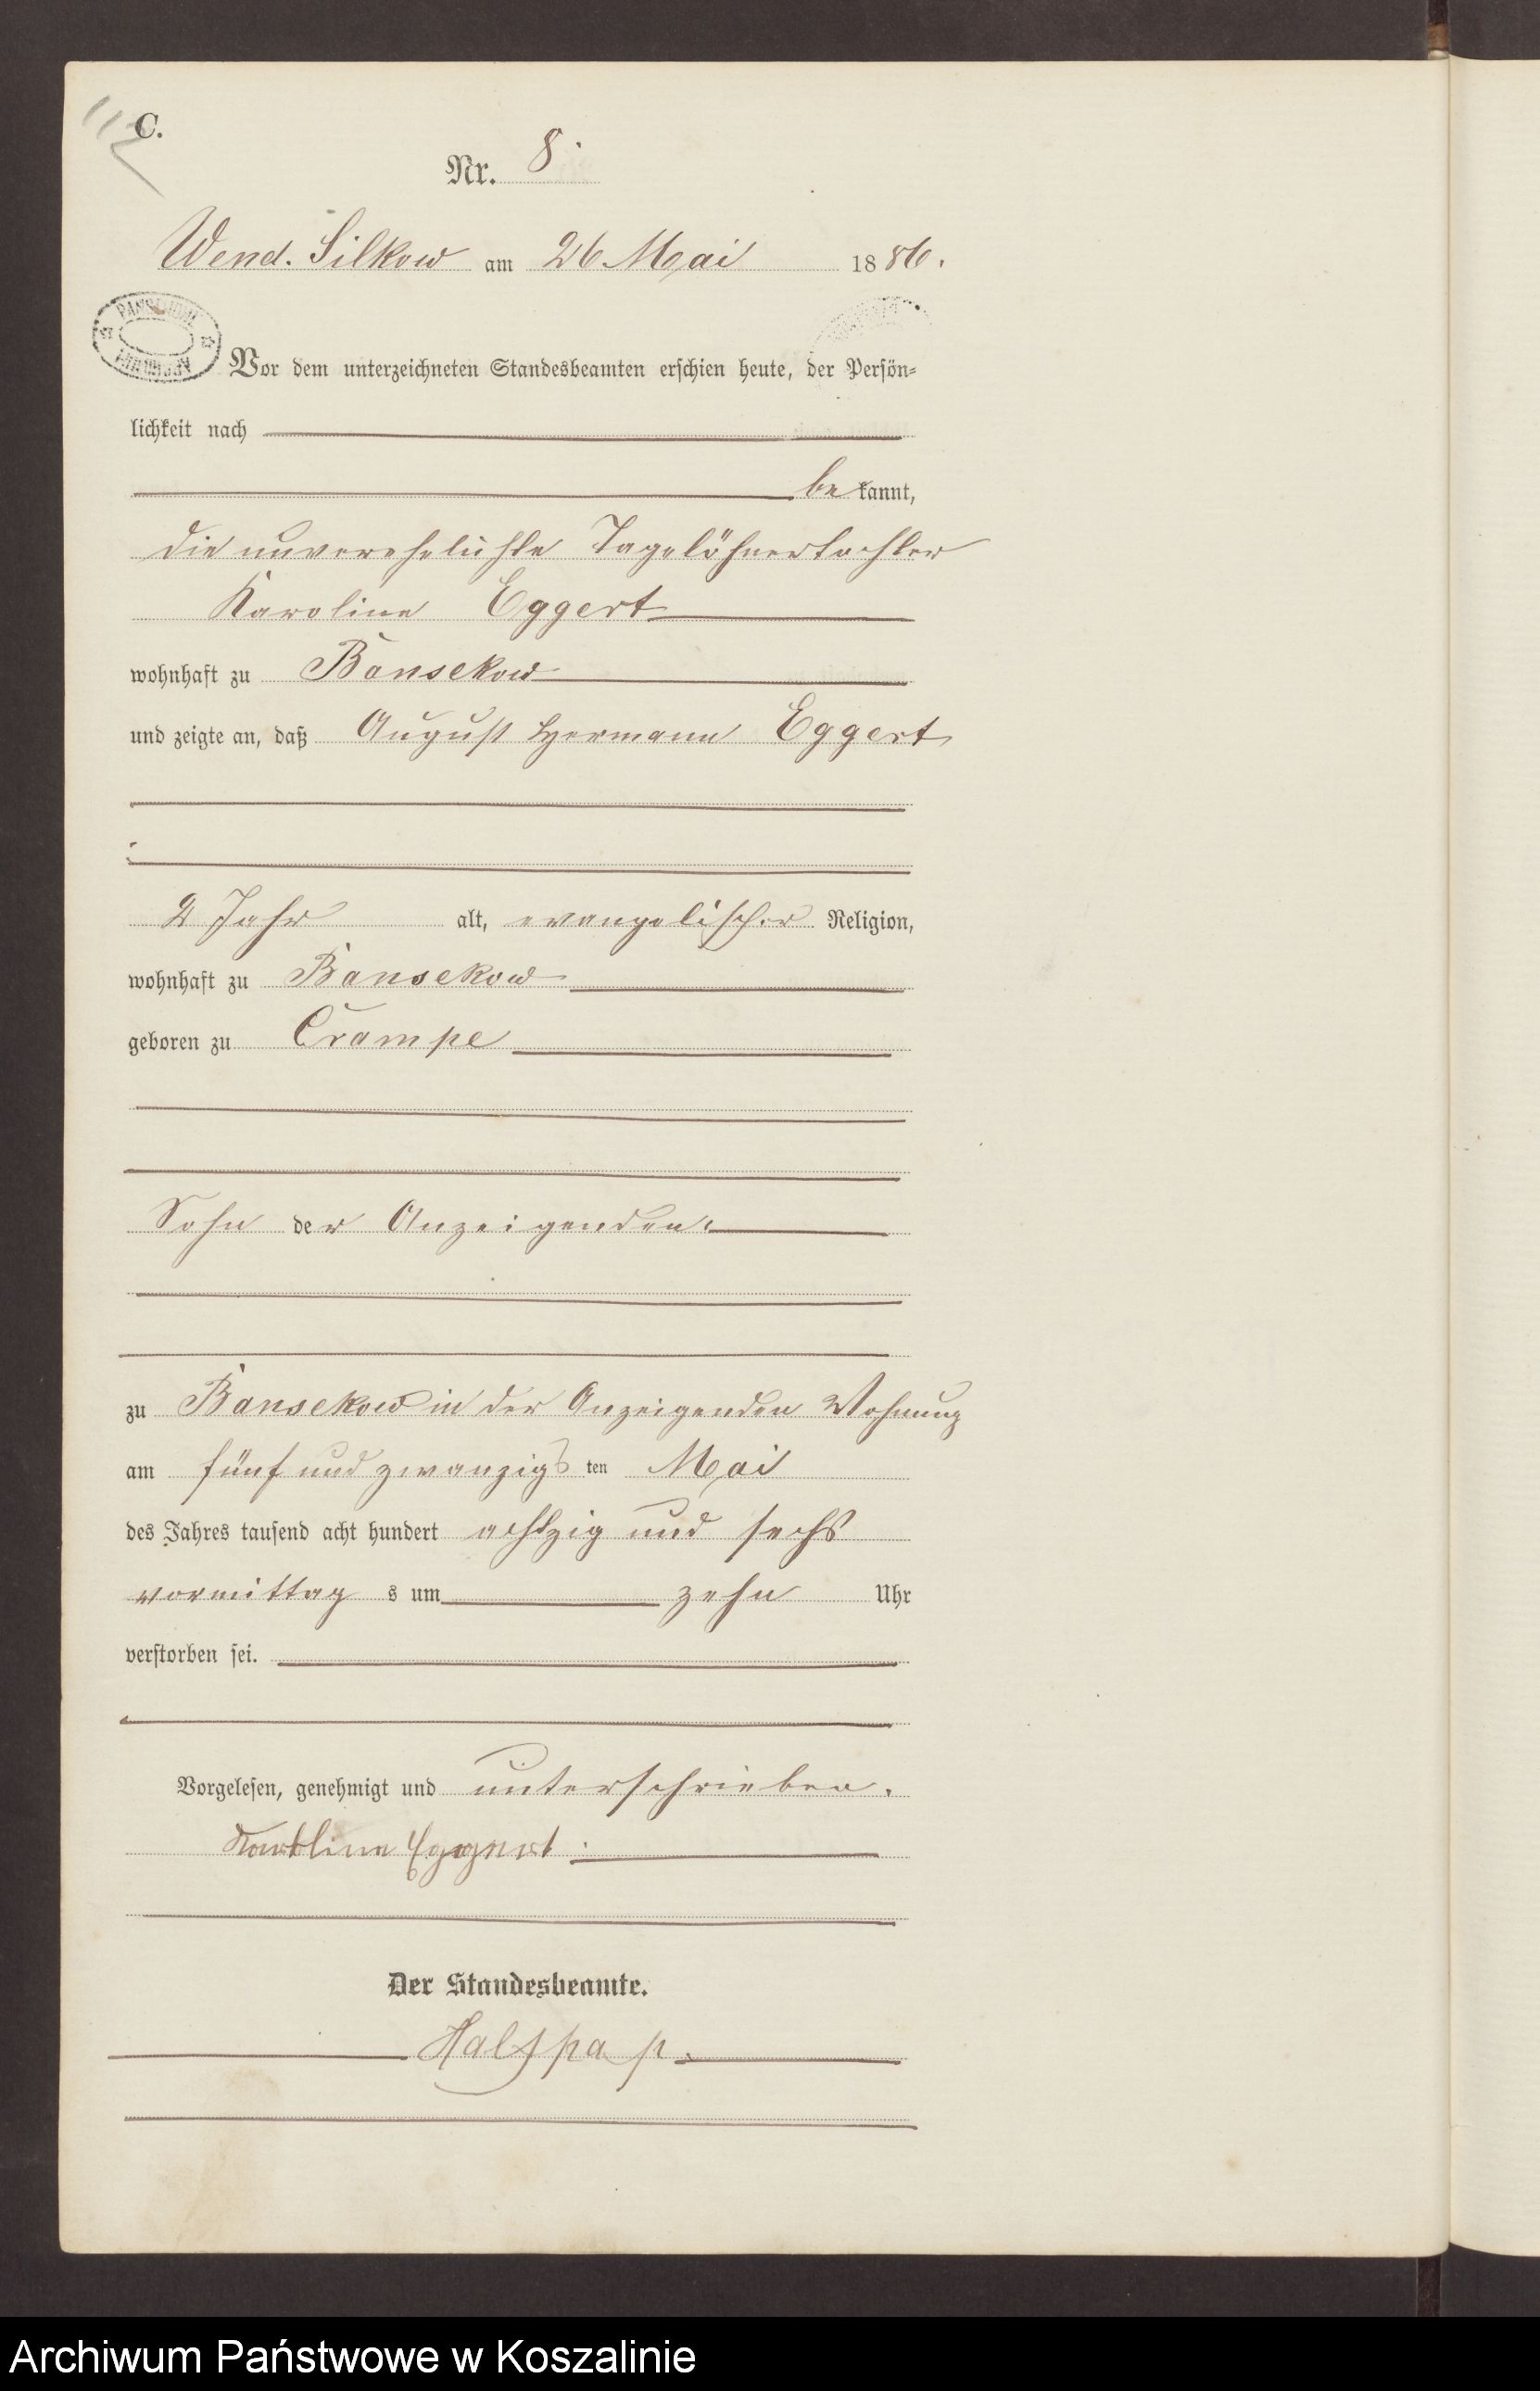 112
C.
Nr. 8.
Wend. Silkow am 26 Mai 1886.
Vor dem unterzeichneten Standesbeamten erschien heute, der Persön-
lichkeit nach
bekannt,
die unverehelichte Tagelöhnertochter
Karoline Eggert
wohnhaft zu Bansekow
und zeigte an, daß August Hermann Eggert
2 Jahr alt, evangelischer Religion,
wohnhaft zu Bansekow
geboren zu Crampe
Sohn der Anzeigenden.
zu Bansekow in der Anzeigenden Wohnung
am fünf und zwanzigsten Mai
des Jahres tausend acht hundert achtzig und sechs
vormittags um zehn Uhr
verstorben sei.
Vorgelesen, genehmigt und unterschrieben.
Karoline Eggert.
Der Standesbeamte.
Halfpap.
Archiwum Państwowe w Koszalinie